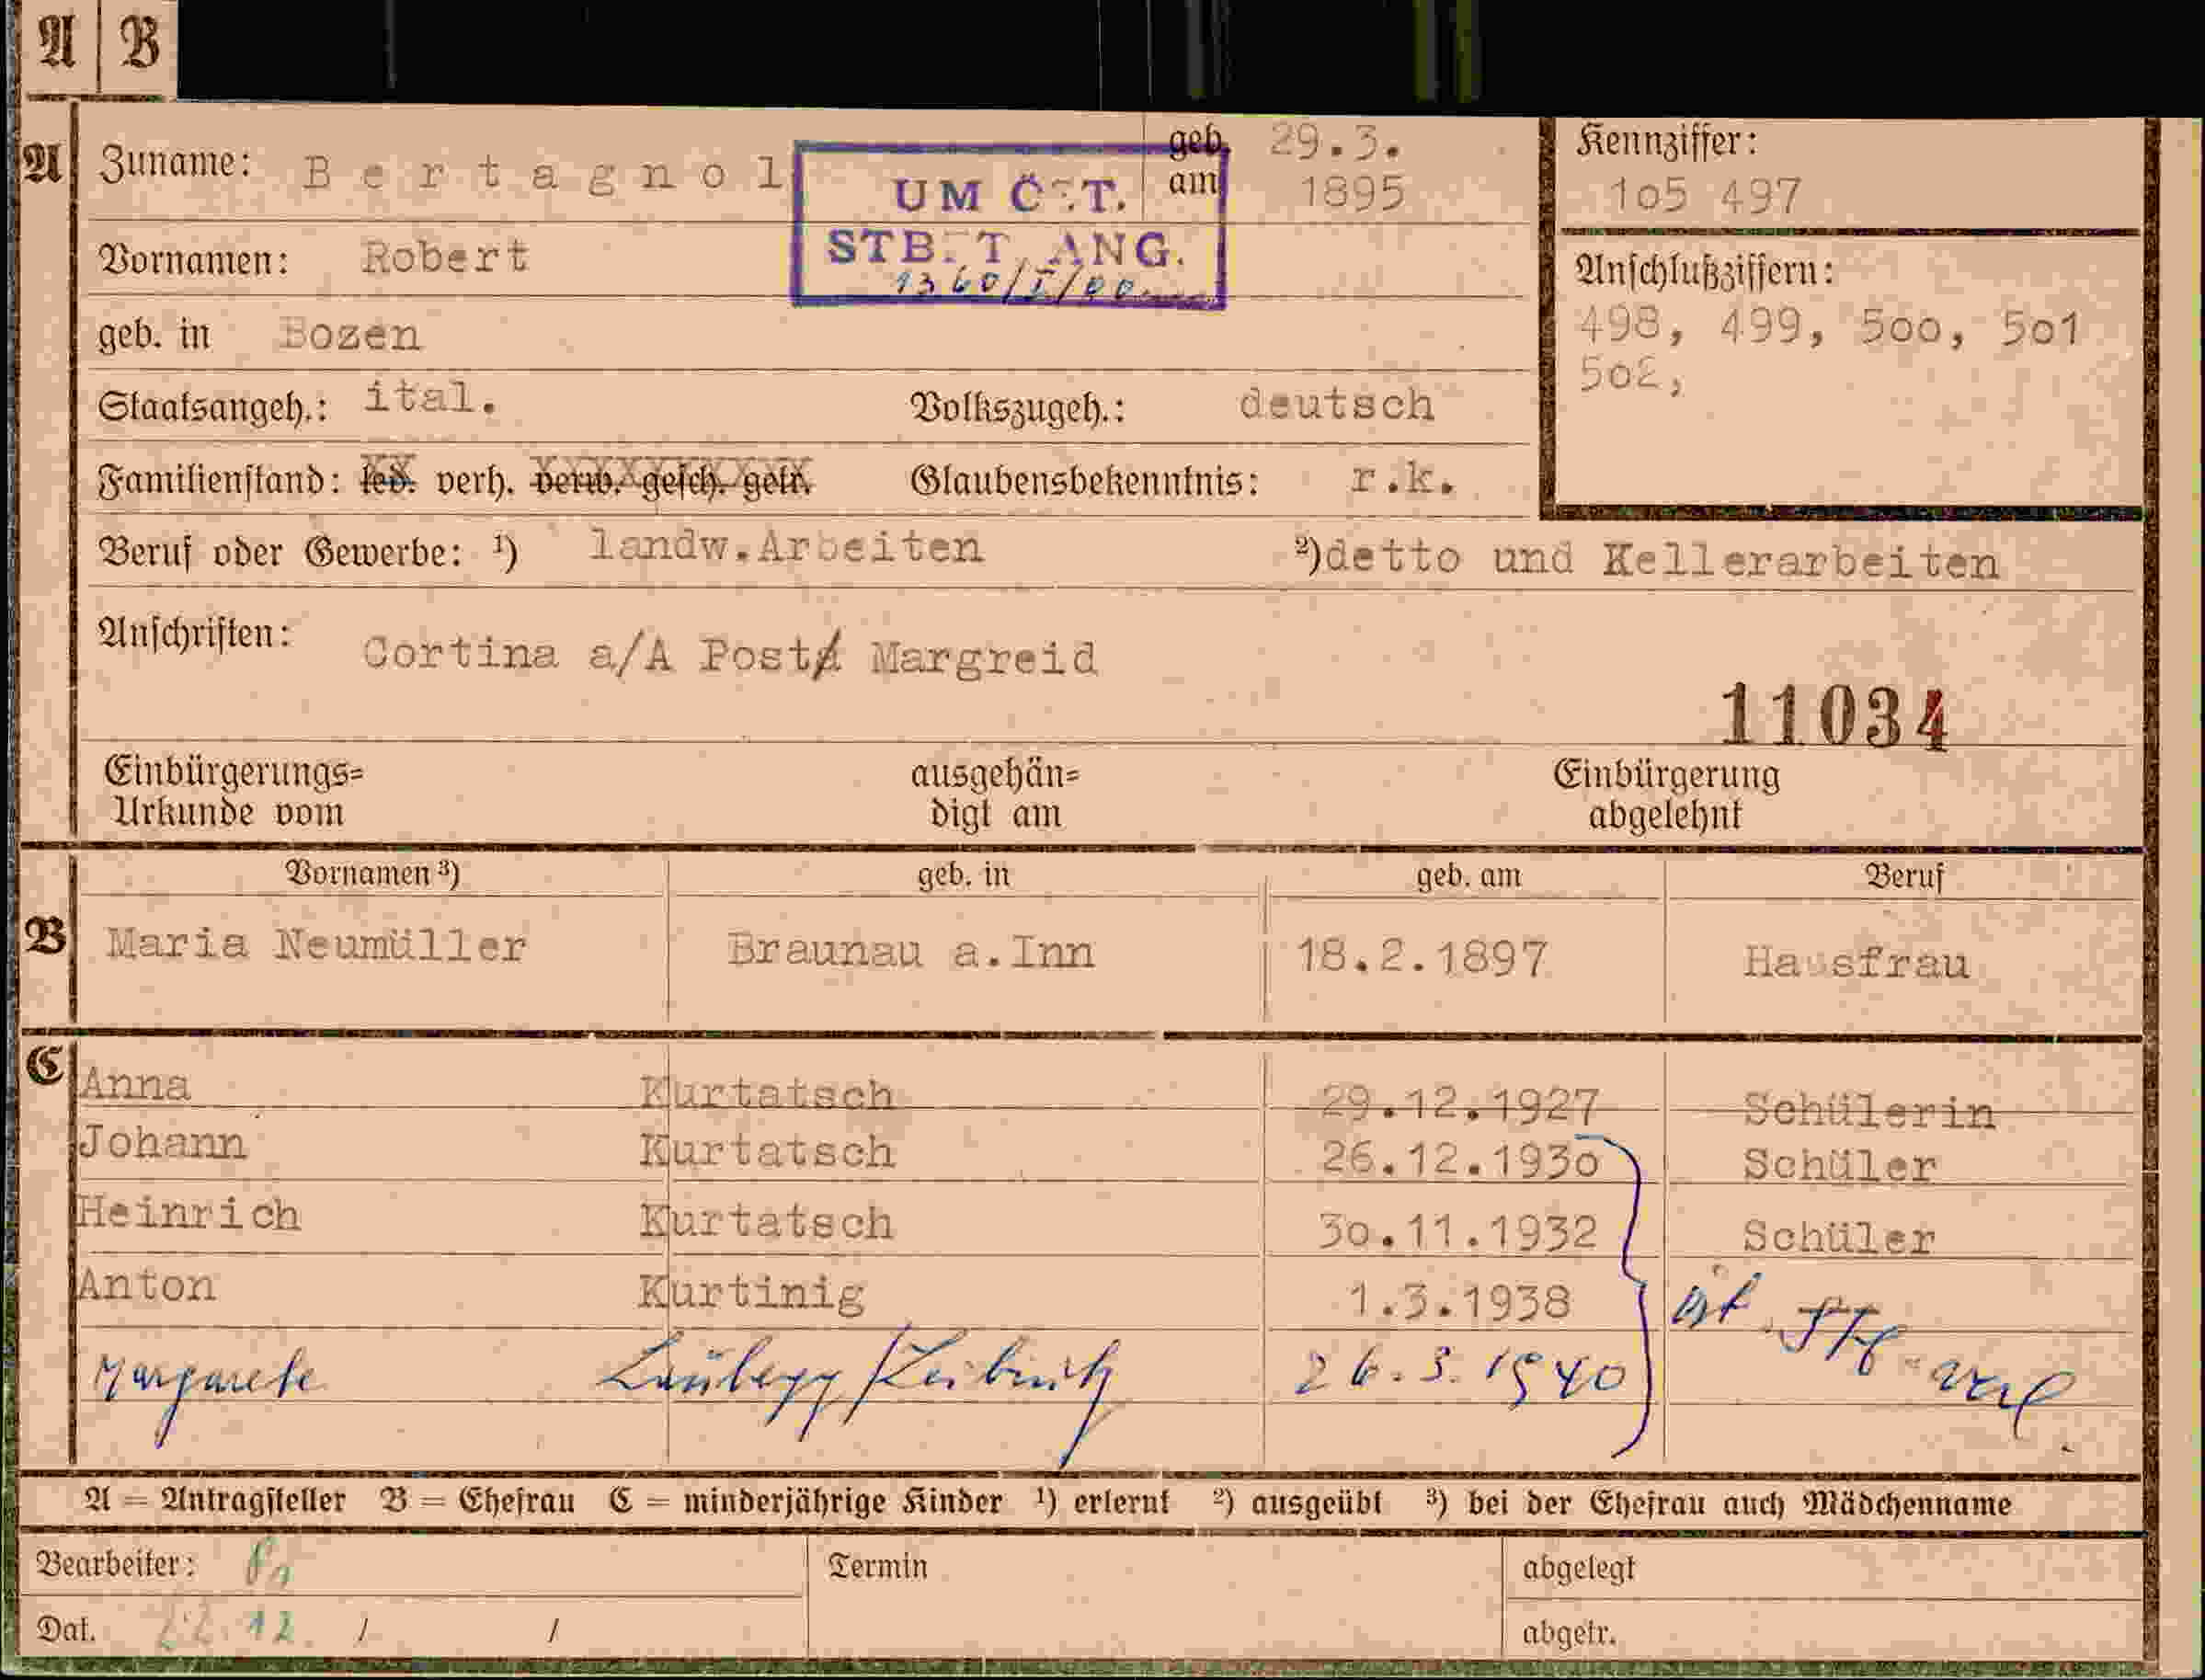 A B
A Zuname: Bertagnol geb. am 29.3. 1895
Kennziffer:
1o5 497
UM ÖST.
STB.T. ANG.
1360/I/00
Vornamen: Robert
Anschlußziffern:
498, 499, 5oo, 5o1
5o2,
geb. in Bozen
Staatsangeh.: ital. Volkszugeh.: deutsch
Familienstand: led. verh. verw. gesch. getr. Glaubensbekenntnis: r.k.
Beruf oder Gewerbe: ¹) landw.Arbeiten ²)detto und Kellerarbeiten
Anschriften: Cortina a/A Post Margreid
11034
Einbürgerungs= Urkunde vom ausgehän= digt am Einbürgerung abgelehnt
Vornamen ³) geb. in geb. am Beruf
B Maria Neumüller Braunau a.Inn 18.2.1897 Hausfrau
C Anna Kurtatsch 29.12.1927 Schülerin
Johann Kurtatsch 26.12.193o Schüler
Heinrich Kurtatsch 3o.11.1932 Schüler
Anton Kurtinig 1.3.1938
Margarete 26.3.1940
A = Antragsteller B = Ehefrau C = minderjährige Kinder ¹) erlernt ²) ausgeübt ³) bei der Ehefrau auch Mädchenname
Bearbeiter: Termin abgelegt
Dat. 22.12. / / abgetr.